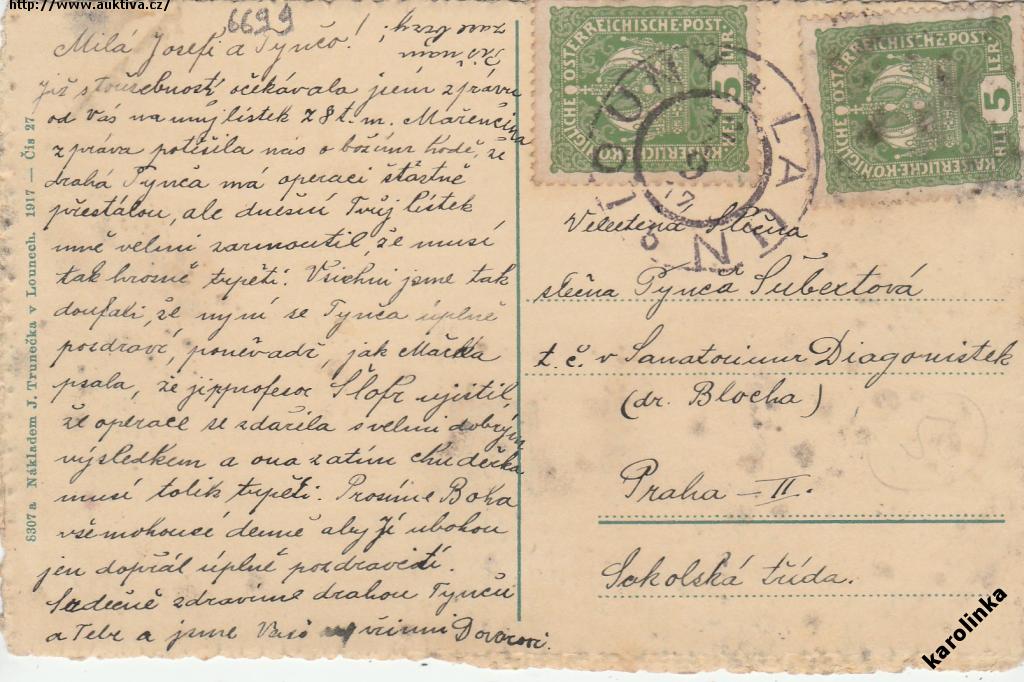 http://www.auktiva.cz/
6699
Milá Josefi a Tynčo!
Již s toužebností očekávala jsem zprávu
od Vás na můj lístek z 8 t. m. Mařenčina
zpráva potěšila nás o božím hodě, že
drahá Tynča má operaci šťastně
přestálou, ale dnešní Tvůj lístek
mně velmi zarmoutil že musí
tak hrozně trpěti. Všichni jsme tak
doufali, že nyní se Tynča úplně
pozdraví, poněvadž, jak Mařka
psala, že jí p. profesor ujistil,
že operace se zdařila s velmi dobrým
výsledkem a ona zatím chuděrka
musí tolik trpěti. Prosíme Boha
všemohoucí denně aby Jí ubohou
jen dopřál úplné pozdravetí.
Srdečně zdravíme drahou Tynču
a Tebe a jsme Vaši
8307 a Nákladem J. Trunečka v Lounech. 1917 — Čís 27.
KAISERLICHE-KÖNIGLICHE ÖSTERREICHISCHE-POST.
5 HELLER
KAISERLICHE-KÖNIGLICHE ÖSTERREICHISCHE-POST.
5 HELLER
LAUN
LOUNY
17
Velectěná Slečna
slečna Tynča Šubertová
t. č. v Sanatorimur Diagonistek
(dr. Blocha)
Praha – II.
Sokolská třída.
karolinka